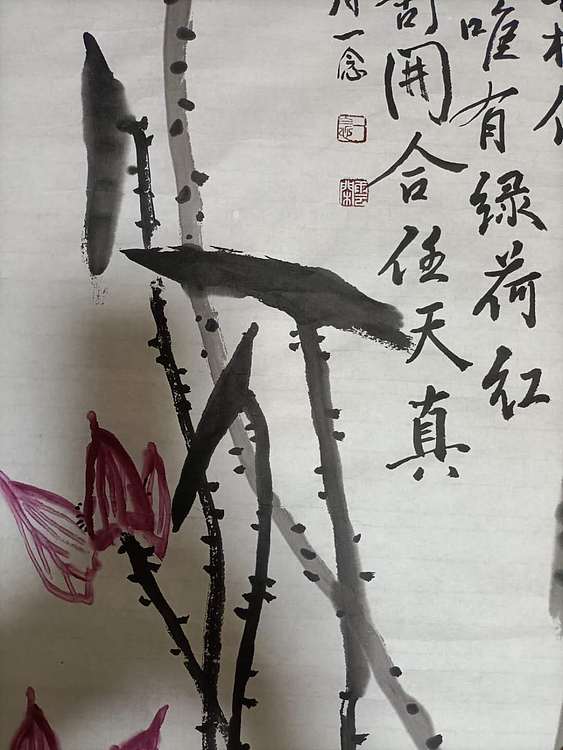 唯有绿荷红
開合任天真
一念